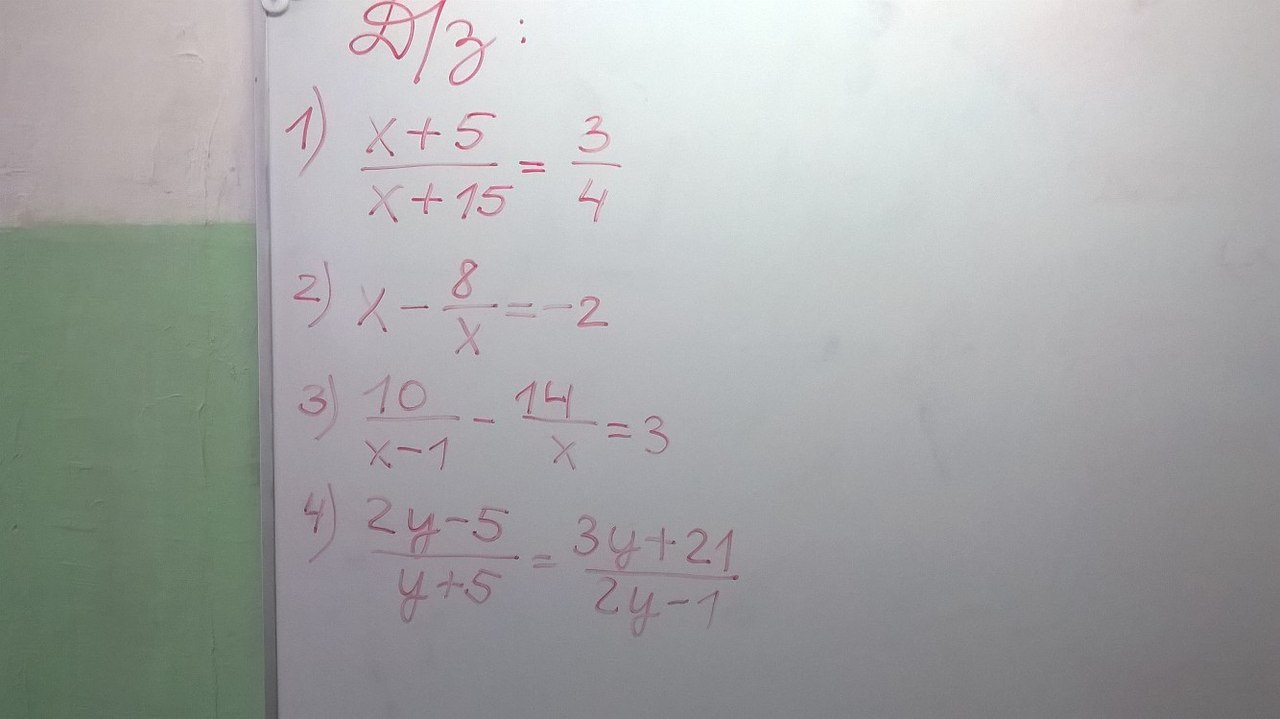 Д/з:
1) x+5/x+15 = 3/4
2) x - 8/x = -2
3) 10/x-1 - 14/x = 3
4) 2y-5/y+5 = 3y+21/2y-1